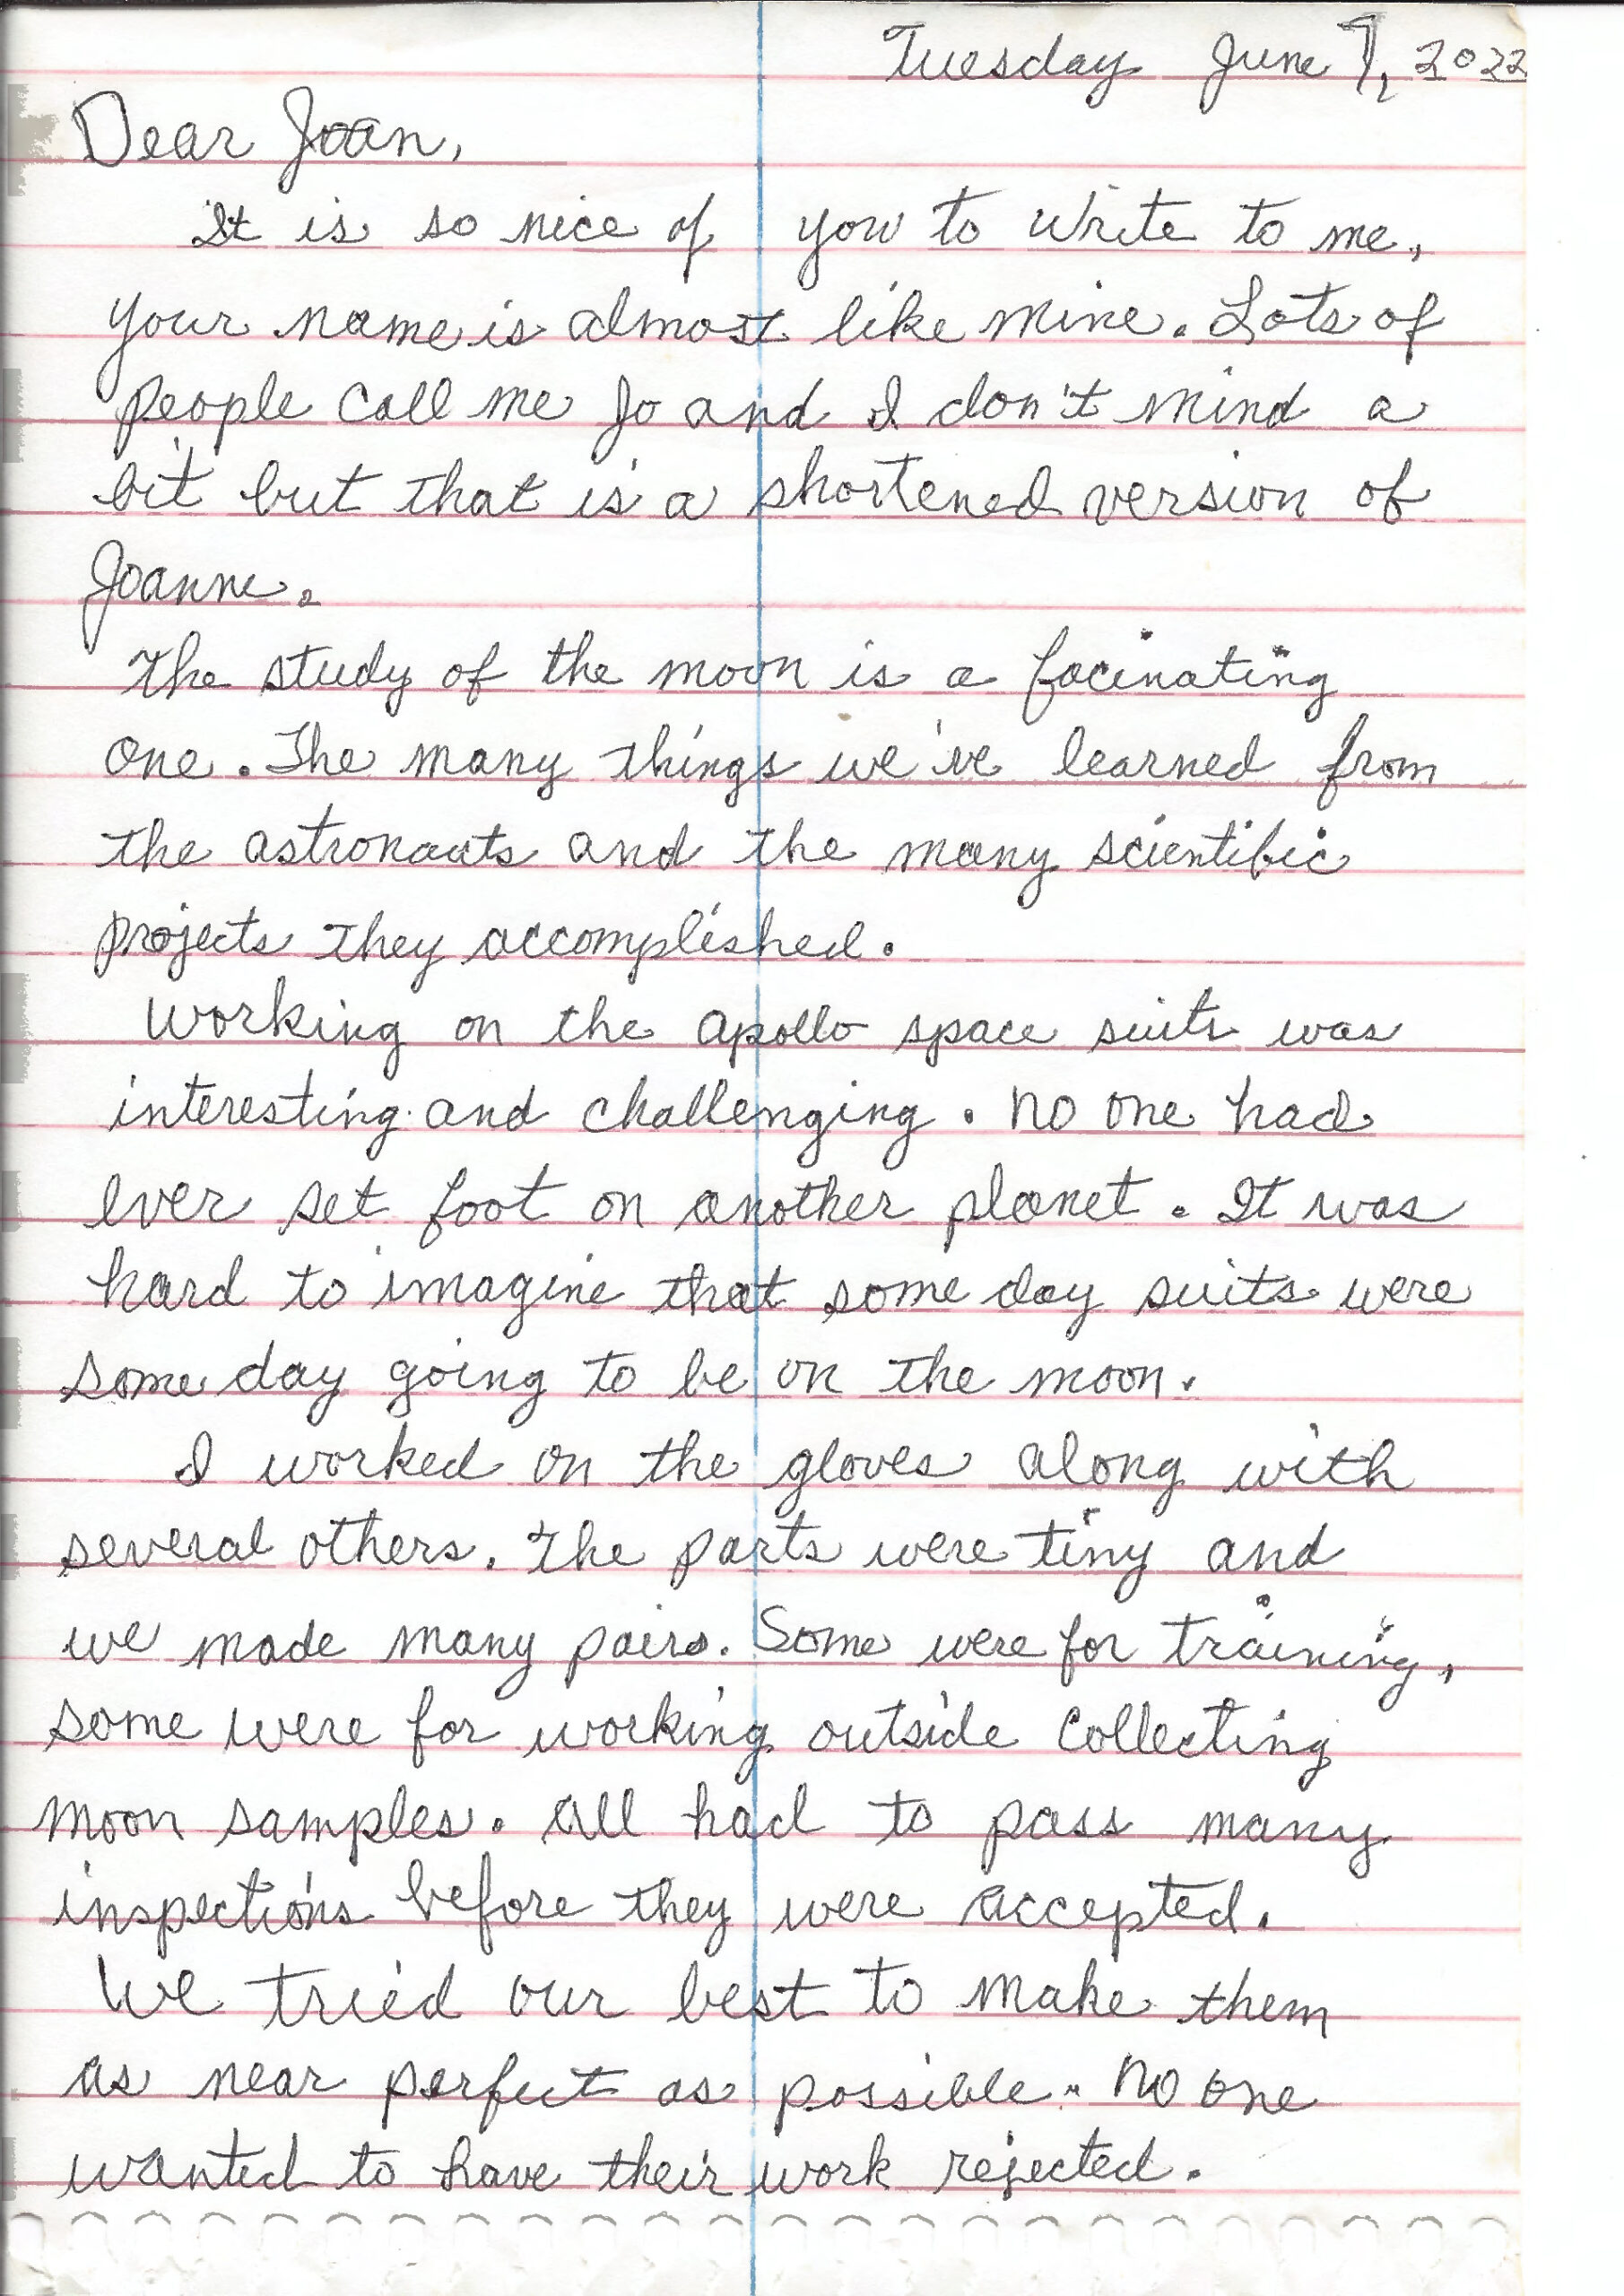 Tuesday June 7, 2022
Dear Joan,
It is so nice of you to write to me,
your name is almost like mine. Lots of
people call me Jo and I don't mind a
bit but that is a shortened version of
Joanne.
The study of the moon is a facinating
one. The many things we've learned from
the astronauts and the many scientific
projects they accomplished.
Working on the apollo space suits was
interesting and challenging. No one had
ever set foot on another planet. It was
hard to imagine that some day suits were
some day going to be on the moon.
I worked on the gloves along with
several others. The parts were tiny and
we made many pairs. Some were for training,
some were for working outside collecting
moon samples. All had to pass many
inspections before they were accepted.
We tried our best to make them
as near perfect as possible. No one
wanted to have their work rejected.